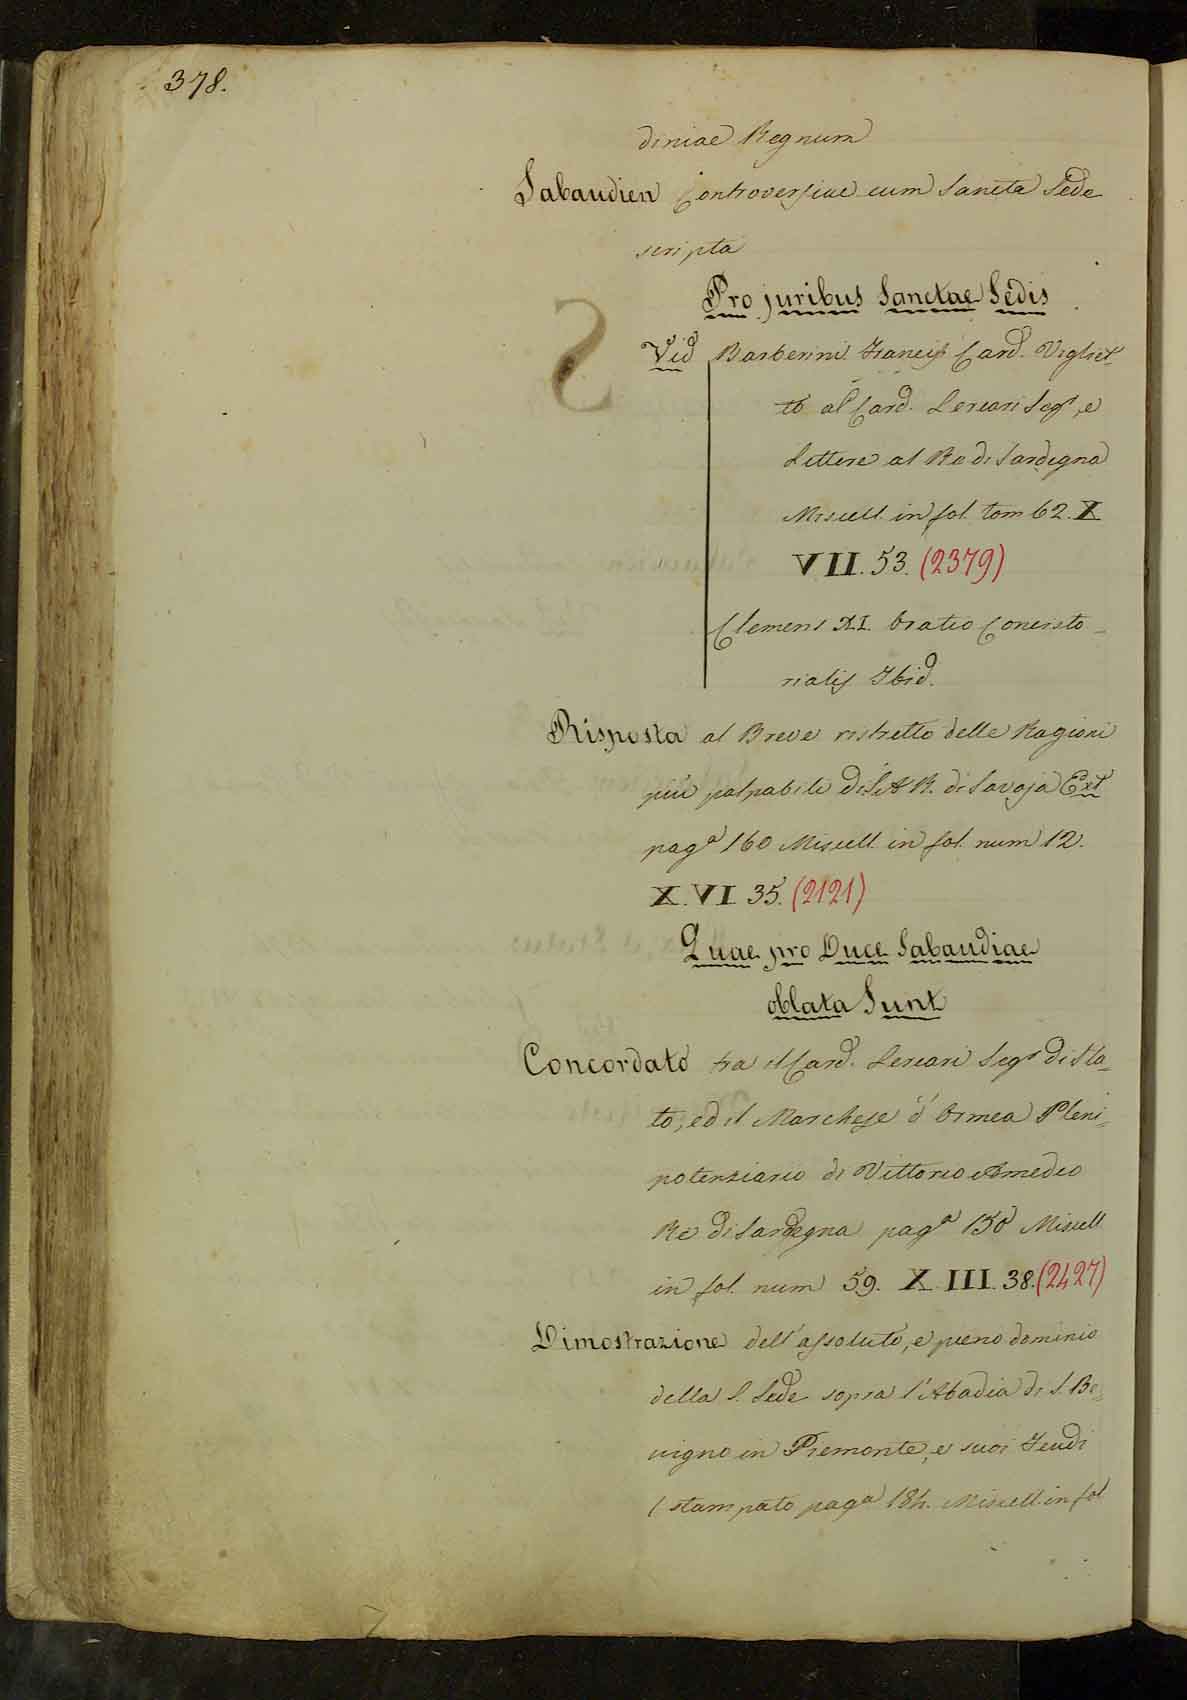 378.
diniae Regnum
Sabaudien Controversiae cum Sancta Sede
scripta
Pro juribus Sanctae Sedis
Vid Barberini Francisc Card. Vigliet-
to al Card. Lercari Segr, e
Lettere al Re di Sardegna
Miscell. in fol. tom 62. X
VII. 53. (2379)
Clemens XI. Oratio Concisto-
rialis Ibid.
Risposta al Breve ristretto delle Ragioni
più palpabili di S. A. R. di Savoja Ext
paga 160 Miscell. in fol. num 12.
X. VI 35. (2121)
Quae pro Duce Sabaudiae
oblata Sunt
Concordato tra il Card. Lercari Segr di Sta-
to, ed il Marchese d'Ormea Pleni-
potenziario di Vittorio Amedeo
Re di Sardegna paga 150 Miscell
in fol. num 59. X III. 38. (2427)
Dimostrazione dell'assoluto, e pieno dominio
della S. Sede sopra l'Abadia di S. Be-
nigno in Piemonte, e suoi Feudi
(stampato paga 184. Miscell. in fol